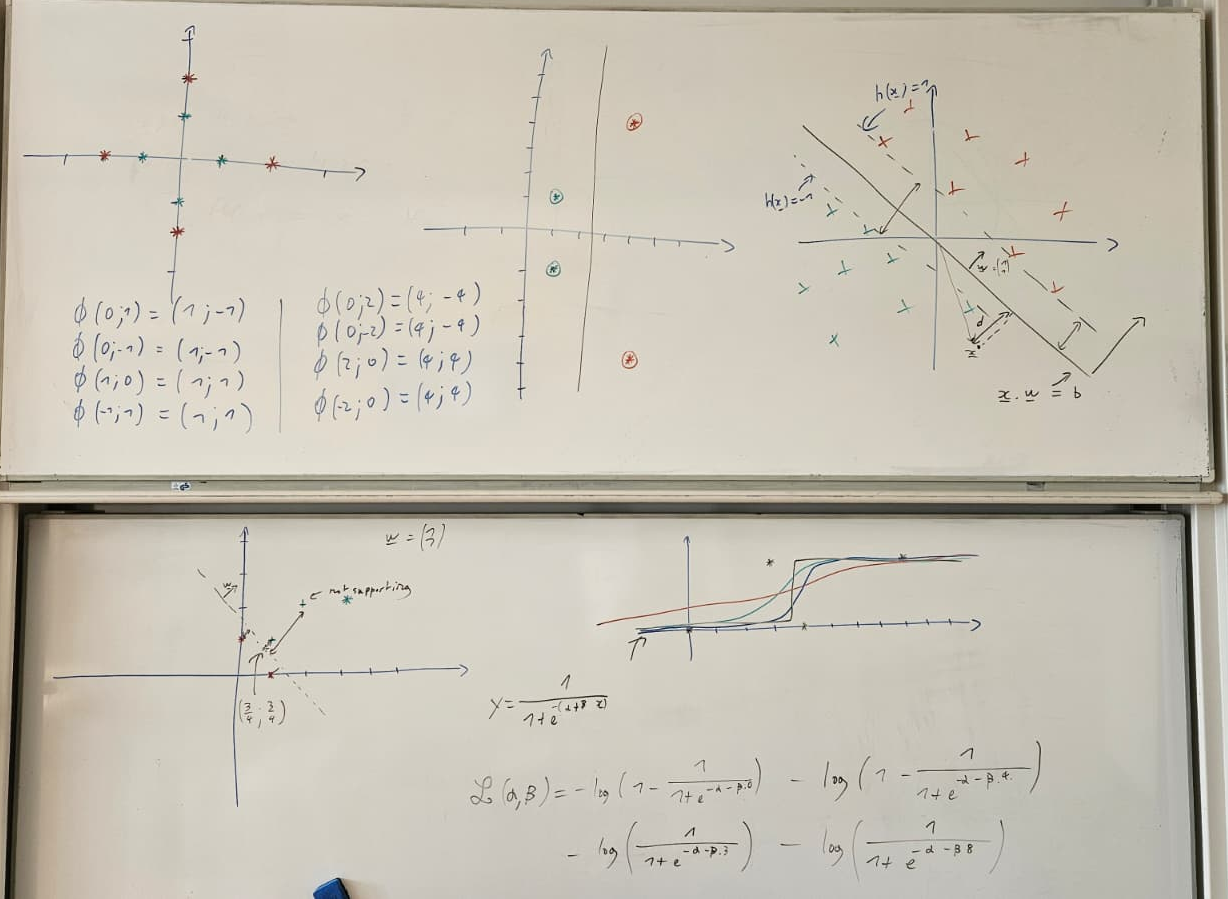 ϕ(0;1) = (1;-1)
ϕ(0;-1) = (1;-1)
ϕ(1;0) = (1;1)
ϕ(-1;1) = (1;1)
ϕ(0;2) = (4; -4)
ϕ(0;-2) = (4; -4)
ϕ(2;0) = (4;4)
ϕ(-2;0) = (4;4)
h(x) = 1
h(x) = -1
w = (1 1)
d
x
x . w = b
w = (1 1)
w
← not supporting
(3/4 ; 3/4)
y = 1/(1+e^-(α+β x))
L(α,β) = - log (1 - 1/(1+e^-α-β.0)) - log (1 - 1/(1+e^-α-β.4.))
- log (1/(1+e^-α-β.3)) - log (1/(1+e^-α-β8))